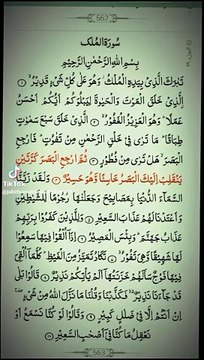 562
سُورَةُ المُلْك
بِسْمِ اللَّهِ الرَّحْمَٰنِ الرَّحِيمِ
تَبَارَكَ الَّذِي بِيَدِهِ الْمُلْكُ وَهُوَ عَلَىٰ كُلِّ شَيْءٍ قَدِيرٌ ①
الَّذِي خَلَقَ الْمَوْتَ وَالْحَيَاةَ لِيَبْلُوَكُمْ أَيُّكُمْ أَحْسَنُ
عَمَلًا ۚ وَهُوَ الْعَزِيزُ الْغَفُورُ ② الَّذِي خَلَقَ سَبْعَ سَمَاوَاتٍ
طِبَاقًا ۖ مَا تَرَىٰ فِي خَلْقِ الرَّحْمَٰنِ مِنْ تَفَاوُتٍ ۖ فَارْجِعِ
الْبَصَرَ هَلْ تَرَىٰ مِنْ فُطُورٍ ③ ثُمَّ ارْجِعِ الْبَصَرَ كَرَّتَيْنِ
يَنْقَلِبْ إِلَيْكَ الْبَصَرُ خَاسِئًا وَهُوَ حَسِيرٌ ④ وَلَقَدْ زَيَّنَّا
السَّمَاءَ الدُّنْيَا بِمَصَابِيحَ وَجَعَلْنَاهَا رُجُومًا لِلشَّيَاطِينِ
وَأَعْتَدْنَا لَهُمْ عَذَابَ السَّعِيرِ ⑤ وَلِلَّذِينَ كَفَرُوا بِرَبِّهِمْ
عَذَابُ جَهَنَّمَ ۖ وَبِئْسَ الْمَصِيرُ ⑥ إِذَا أُلْقُوا فِيهَا سَمِعُوا
لَهَا شَهِيقًا وَهِيَ تَفُورُ ⑦ تَكَادُ تَمَيَّزُ مِنَ الْغَيْظِ ۖ كُلَّمَا أُلْقِيَ
فِيهَا فَوْجٌ سَأَلَهُمْ خَزَنَتُهَا أَلَمْ يَأْتِكُمْ نَذِيرٌ ⑧ قَالُوا بَلَىٰ
قَدْ جَاءَنَا نَذِيرٌ فَكَذَّبْنَا وَقُلْنَا مَا نَزَّلَ اللَّهُ مِنْ شَيْءٍ
إِنْ أَنْتُمْ إِلَّا فِي ضَلَالٍ كَبِيرٍ ⑨ وَقَالُوا لَوْ كُنَّا نَسْمَعُ أَوْ
نَعْقِلُ مَا كُنَّا فِي أَصْحَابِ السَّعِيرِ ⑩
563
TikTok